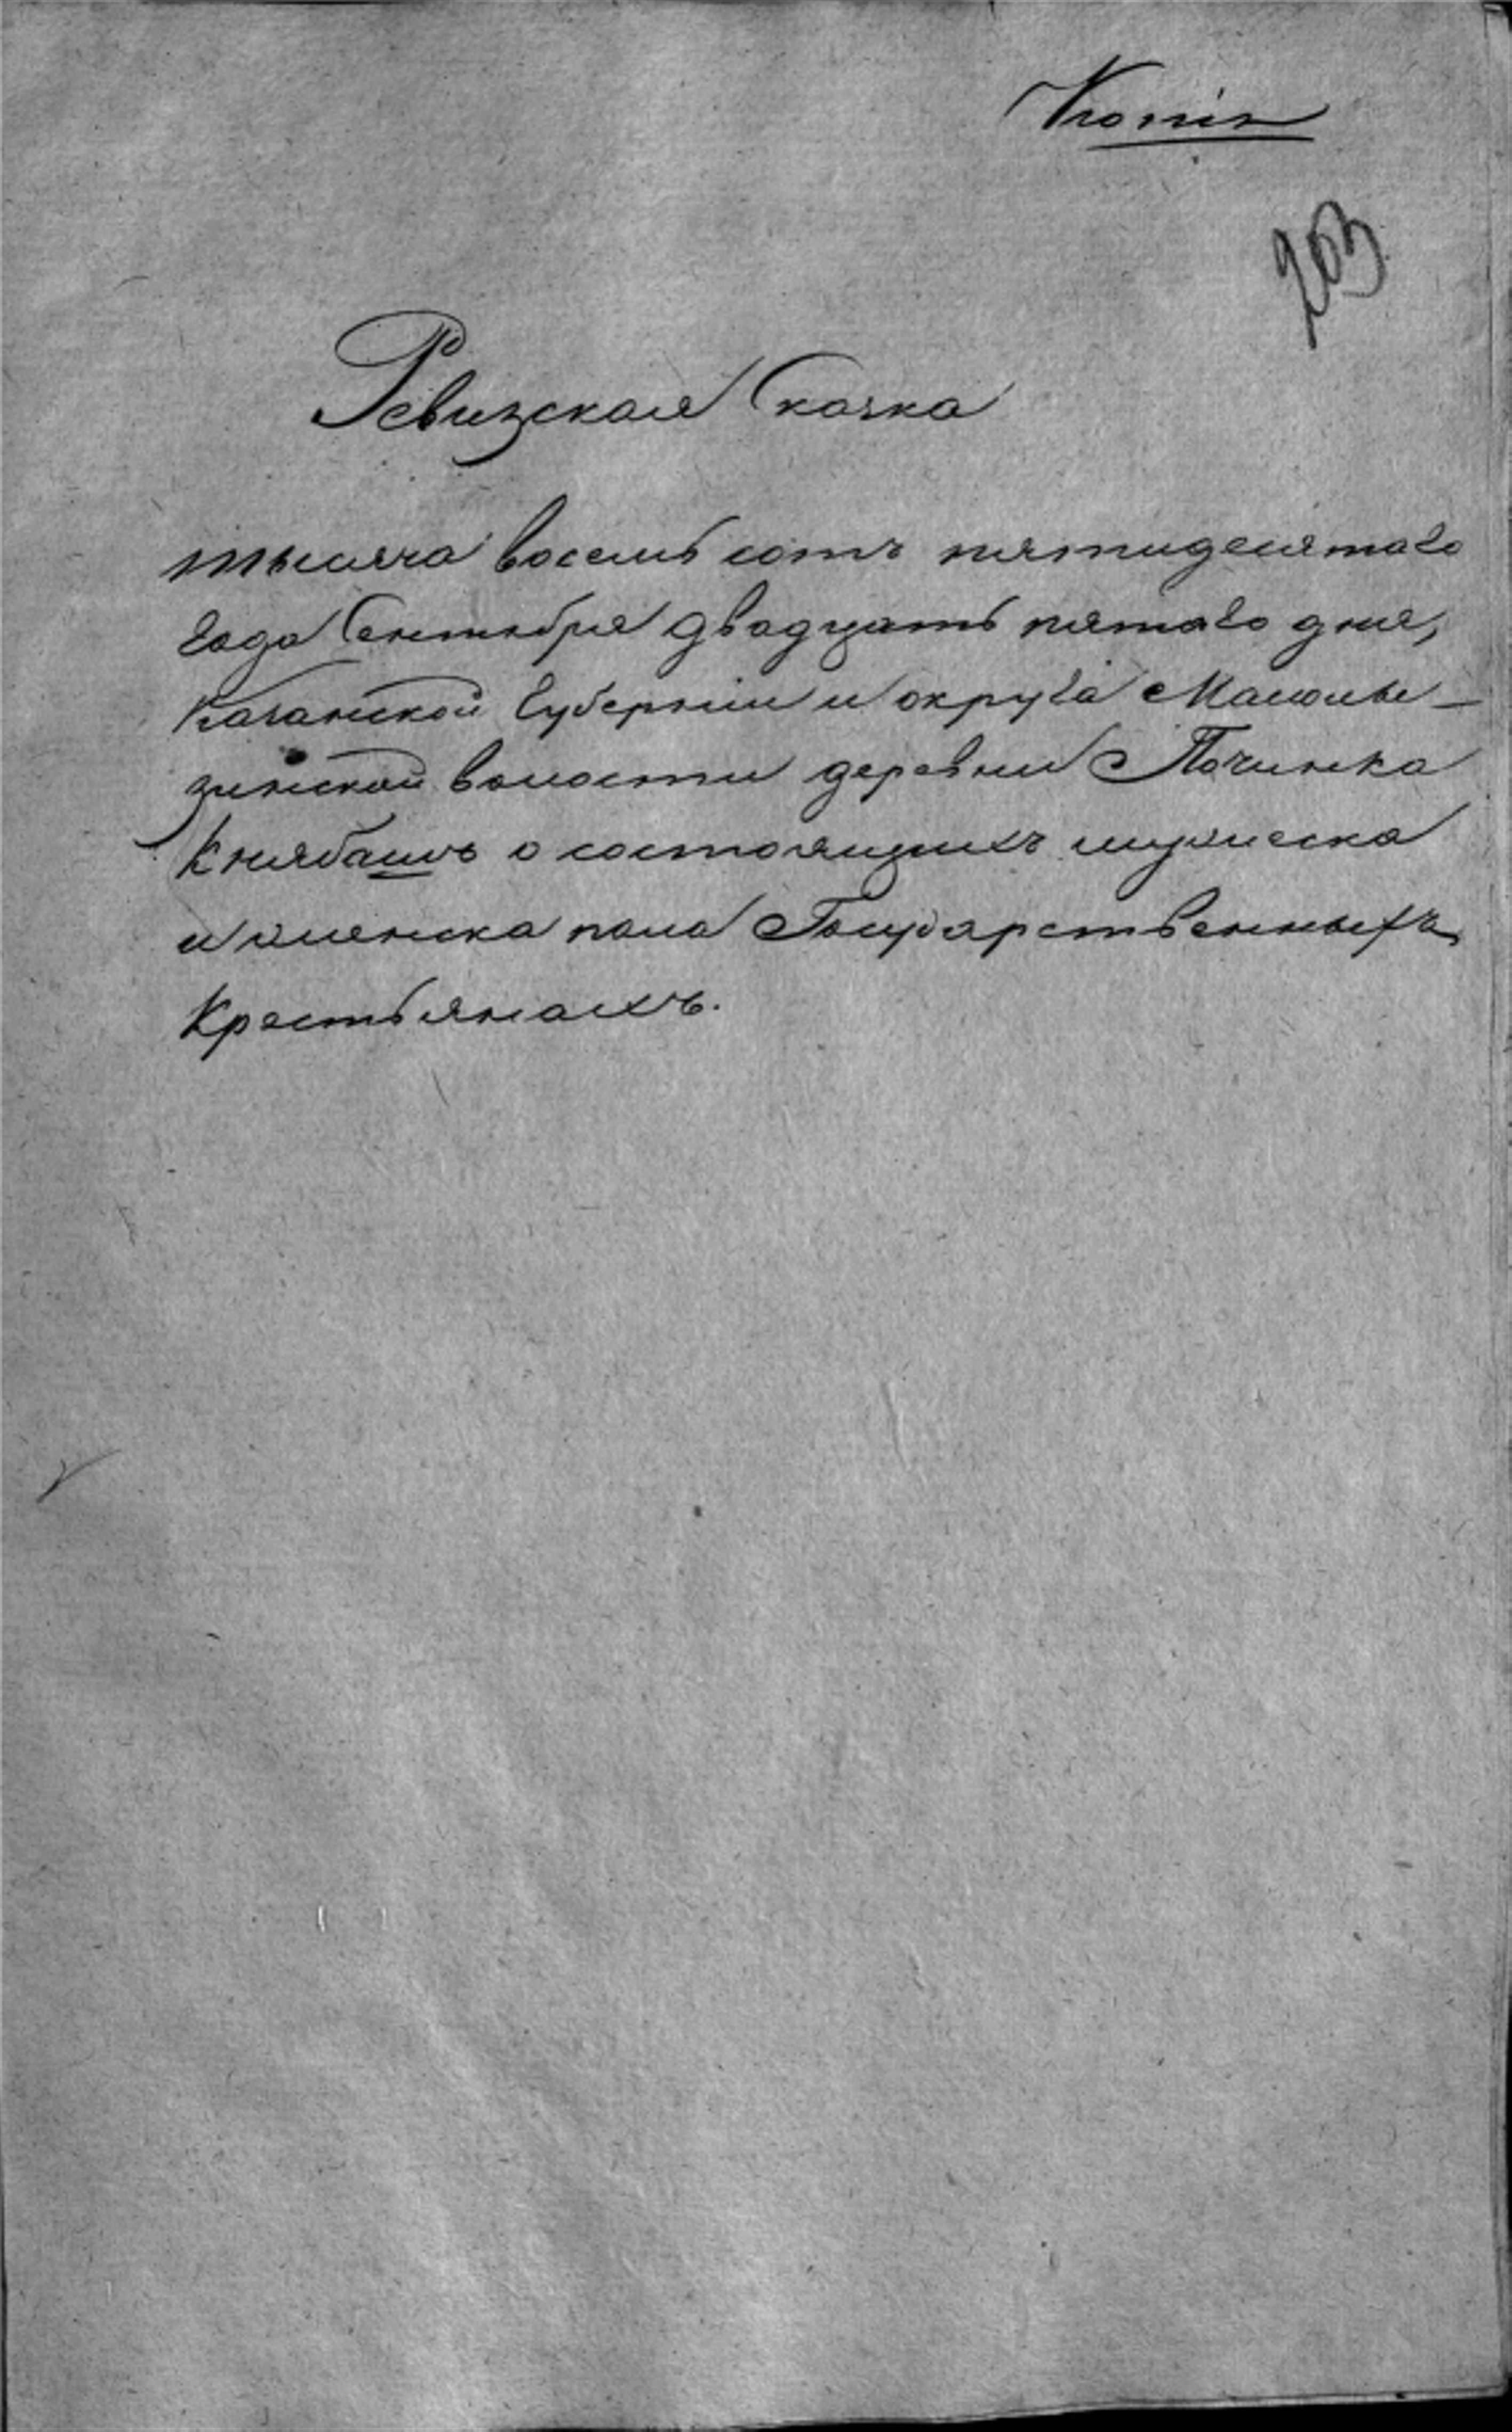 Копія
203
Ревизская Сказка
тысяча восемь сотъ пятидесятаго
года Сентября двадцать пятаго дня,
Казанской Губерніи и округа Мамсѣ-
зинской волости деревни Починка
Князбашъ о состоящихъ мужеска
и женска пола Государственныхъ
Крестьянахъ.